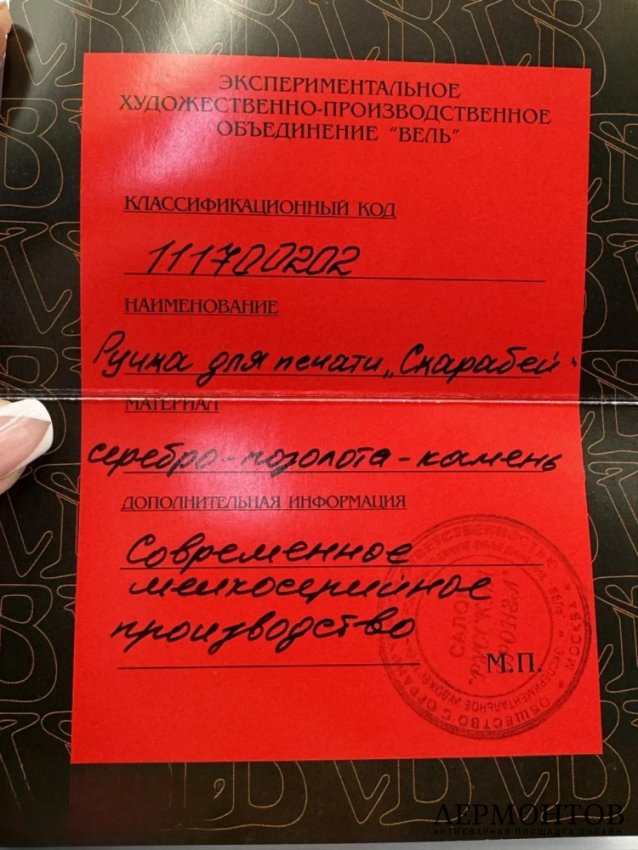 ЭКСПЕРИМЕНТАЛЬНОЕ
ХУДОЖЕСТВЕННО-ПРОИЗВОДСТВЕННОЕ
ОБЪЕДИНЕНИЕ "ВЕЛЬ"
КЛАССИФИКАЦИОННЫЙ КОД
111700202
НАИМЕНОВАНИЕ
Ручка для печати „Скарабей"
МАТЕРИАЛ
серебро-позолота-камень
ДОПОЛНИТЕЛЬНАЯ ИНФОРМАЦИЯ
Современное
мелкосерийное
производство
САЛОН
М.П.
МОСКВА
ОБЩЕСТВО С
ЛЕРМОНТОВ
АНТИКВАРНАЯ ПЛОЩАДКА ОНЛАЙН